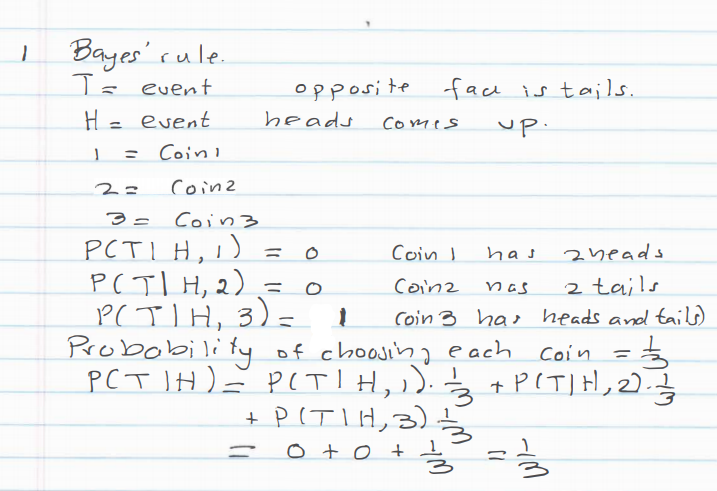 1 Bayes' rule.
T = event opposite face is tails.
H = event heads comes up.
1 = Coin 1
2 = Coin 2
3 = Coin 3
P(T|H, 1) = 0 Coin 1 has 2 heads
P(T|H, 2) = 0 Coin 2 has 2 tails
P(T|H, 3) = 1 Coin 3 has heads and tails)
Probability of choosing each coin = 1/3
P(T|H) = P(T|H, 1). 1/3 + P(T|H, 2). 1/3
+ P(T|H, 3). 1/3
= 0 + 0 + 1/3 = 1/3